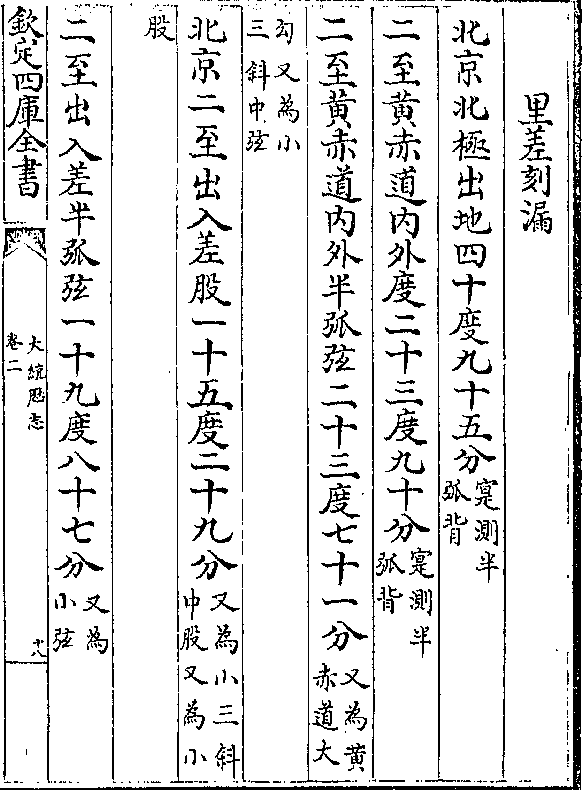 里差刻漏
北京北極出地四十度九十五分寔測半弧背
二至黄赤道内外度二十三度九十分寔測半弧背
二至黄赤道内外半弧弦二十三度七十一分又為黄赤道大
勾又為小三斜中弦
北京二至出入差股一十五度二十九分又為小三斜中股又為小
股
二至出入差半弧弦一十九度八十七分又為小弦
欽定四庫全書
大統厯志
卷二
十八